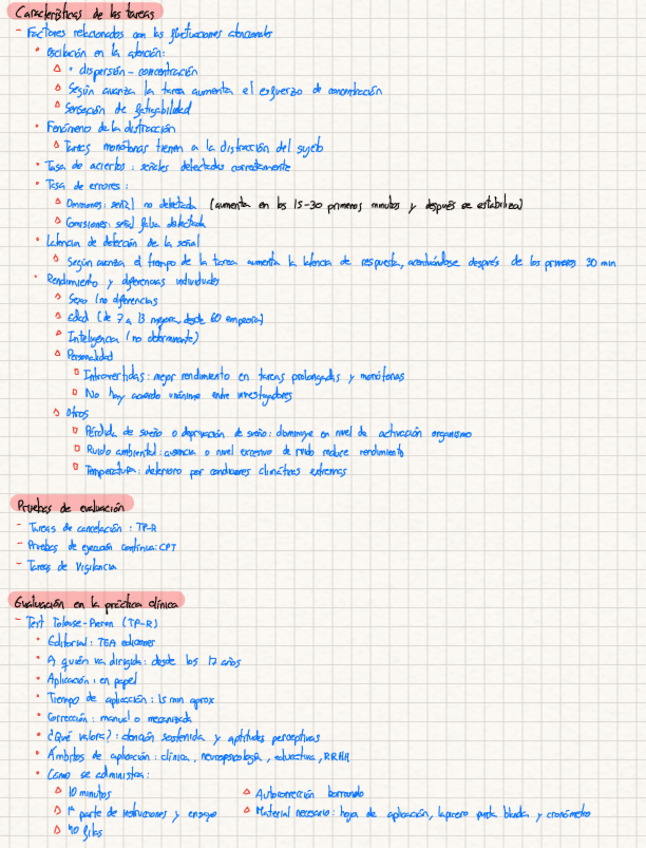 Características de las tareas
- Factores relacionados con las fluctuaciones atencionales
• Oscilación en la atención:
△ • dispersión - concentración
△ Según avanza la tarea aumenta el esfuerzo de concentración
△ Sensación de fatigabilidad
• Fenómeno de la distracción
△ Tareas monótonas tienen a la distracción del sujeto
• Tasa de aciertos: señales detectadas correctamente
• Tasa de errores:
△ Omisiones: señal no detectada (aumenta en los 15-30 primeros minutos y después se estabiliza)
△ Comisiones: señal falsa detectada
• Latencia de detección de la señal
△ Según avanza el tiempo de la tarea aumenta la latencia de respuesta, acentuándose después de los primeros 30 min
• Rendimiento y diferencias individuales
△ Sexo (no diferencias)
△ Edad (de 7 a 13 mejora, desde 60 empeora)
△ Inteligencia (no determinante)
△ Personalidad
□ Introvertidas: mejor rendimiento en tareas prolongadas y monótonas
□ No hay acuerdo unánime entre investigadores
△ Otros
□ Pérdida de sueño o deprivación de sueño: disminuye en nivel de activación organismo
□ Ruido ambiental: ausencia o nivel excesivo de ruido reduce rendimiento
□ Temperatura: deterioro por condiciones climáticas extremas
Pruebas de evaluación
- Tareas de cancelación: TP-R
- Pruebas de ejecución continua: CPT
- Tareas de Vigilancia
Evaluación en la práctica clínica
- Test Toulouse-Pieron (TP-R)
• Editorial: TEA ediciones
• A quién va dirigida: desde los 12 años
• Aplicación: en papel
• Tiempo de aplicación: 15 min aprox
• Corrección: manual o mecanizada
• ¿Qué valora?: atención sostenida y aptitudes perceptivas
• Ámbitos de aplicación: clínica, neuropsicología, educativa, RRHH
• Cómo se administra:
△ 10 minutos
△ 1ª parte de instrucciones y ensayo
△ 40 filas
△ Autocorrección borrando
△ Material necesario: hoja de aplicación, lapicero punta blanda y cronómetro